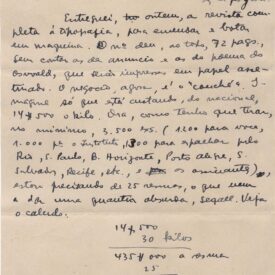 Entreguei, ontem, a revista com-
pleta á tipografia, para encerrar e botar
em maquina. O nº deu, ao todo, 72 pags.,
sem contar as de anuncio e as do poema do
Oswald, que serão impressas em papel aset-
inado. O negocio, agora, é o "couché". I-
magine só que está custando, do nacional,
14$500 o kilo. Ora, como temos que tirar,
no minimo, 3.500 (1200 para voce,
1.000 pª o Instituto, 300 para espalhar pelo
Rio, S. Paulo, B. Horizonte, Porto Alegre, S.
Salvador, Recife, etc., e os assinantes),
estou precisando de 25 resmas, o que vem
a dar uma quantia absurda, Segall. Veja
o calculo:
14$500
30 kilos
435$000 a resma
25